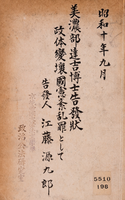 昭和十年九月
美濃部達吉博士告發狀
政体變壞國憲紊乱罪として
告發人 江藤源九郎
5510
196